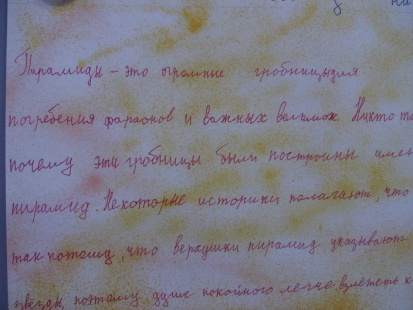 Пирамиды – это огромные гробницыдля
погребения фараонов и важных вельмож. Никто
почему эти гробницы были построины
пирамид. Некоторые историки полагают, что
так потому, что верхушки пирамид указывают
поэтому душе покойного легче взлететь к